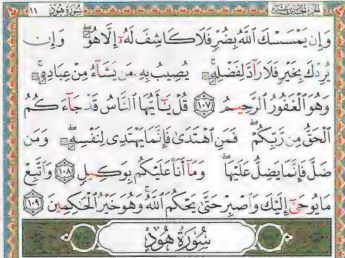 سورة هود ١١
وَإِن يَمْسَسْكَ اللَّهُ بِضُرٍّ فَلَا كَاشِفَ لَهُ إِلَّا هُوَ وَإِن
يُرِدْكَ بِخَيْرٍ فَلَا رَادَّ لِفَضْلِهِ يُصِيبُ بِهِ مَن يَشَاءُ مِنْ عِبَادِهِ
وَهُوَ الْغَفُورُ الرَّحِيمُ ١٠٧ قُلْ يَا أَيُّهَا النَّاسُ قَدْ جَاءَكُمُ
الْحَقُّ مِن رَّبِّكُمْ فَمَنِ اهْتَدَى فَإِنَّمَا يَهْتَدِي لِنَفْسِهِ وَمَن
ضَلَّ فَإِنَّمَا يَضِلُّ عَلَيْهَا وَمَا أَنَا عَلَيْكُم بِوَكِيلٍ ١٠٨ وَاتَّبِعْ
مَا يُوحَى إِلَيْكَ وَاصْبِرْ حَتَّى يَحْكُمَ اللَّهُ وَهُوَ خَيْرُ الْحَاكِمِينَ ١٠٩
سُورَةُ هُودٍ